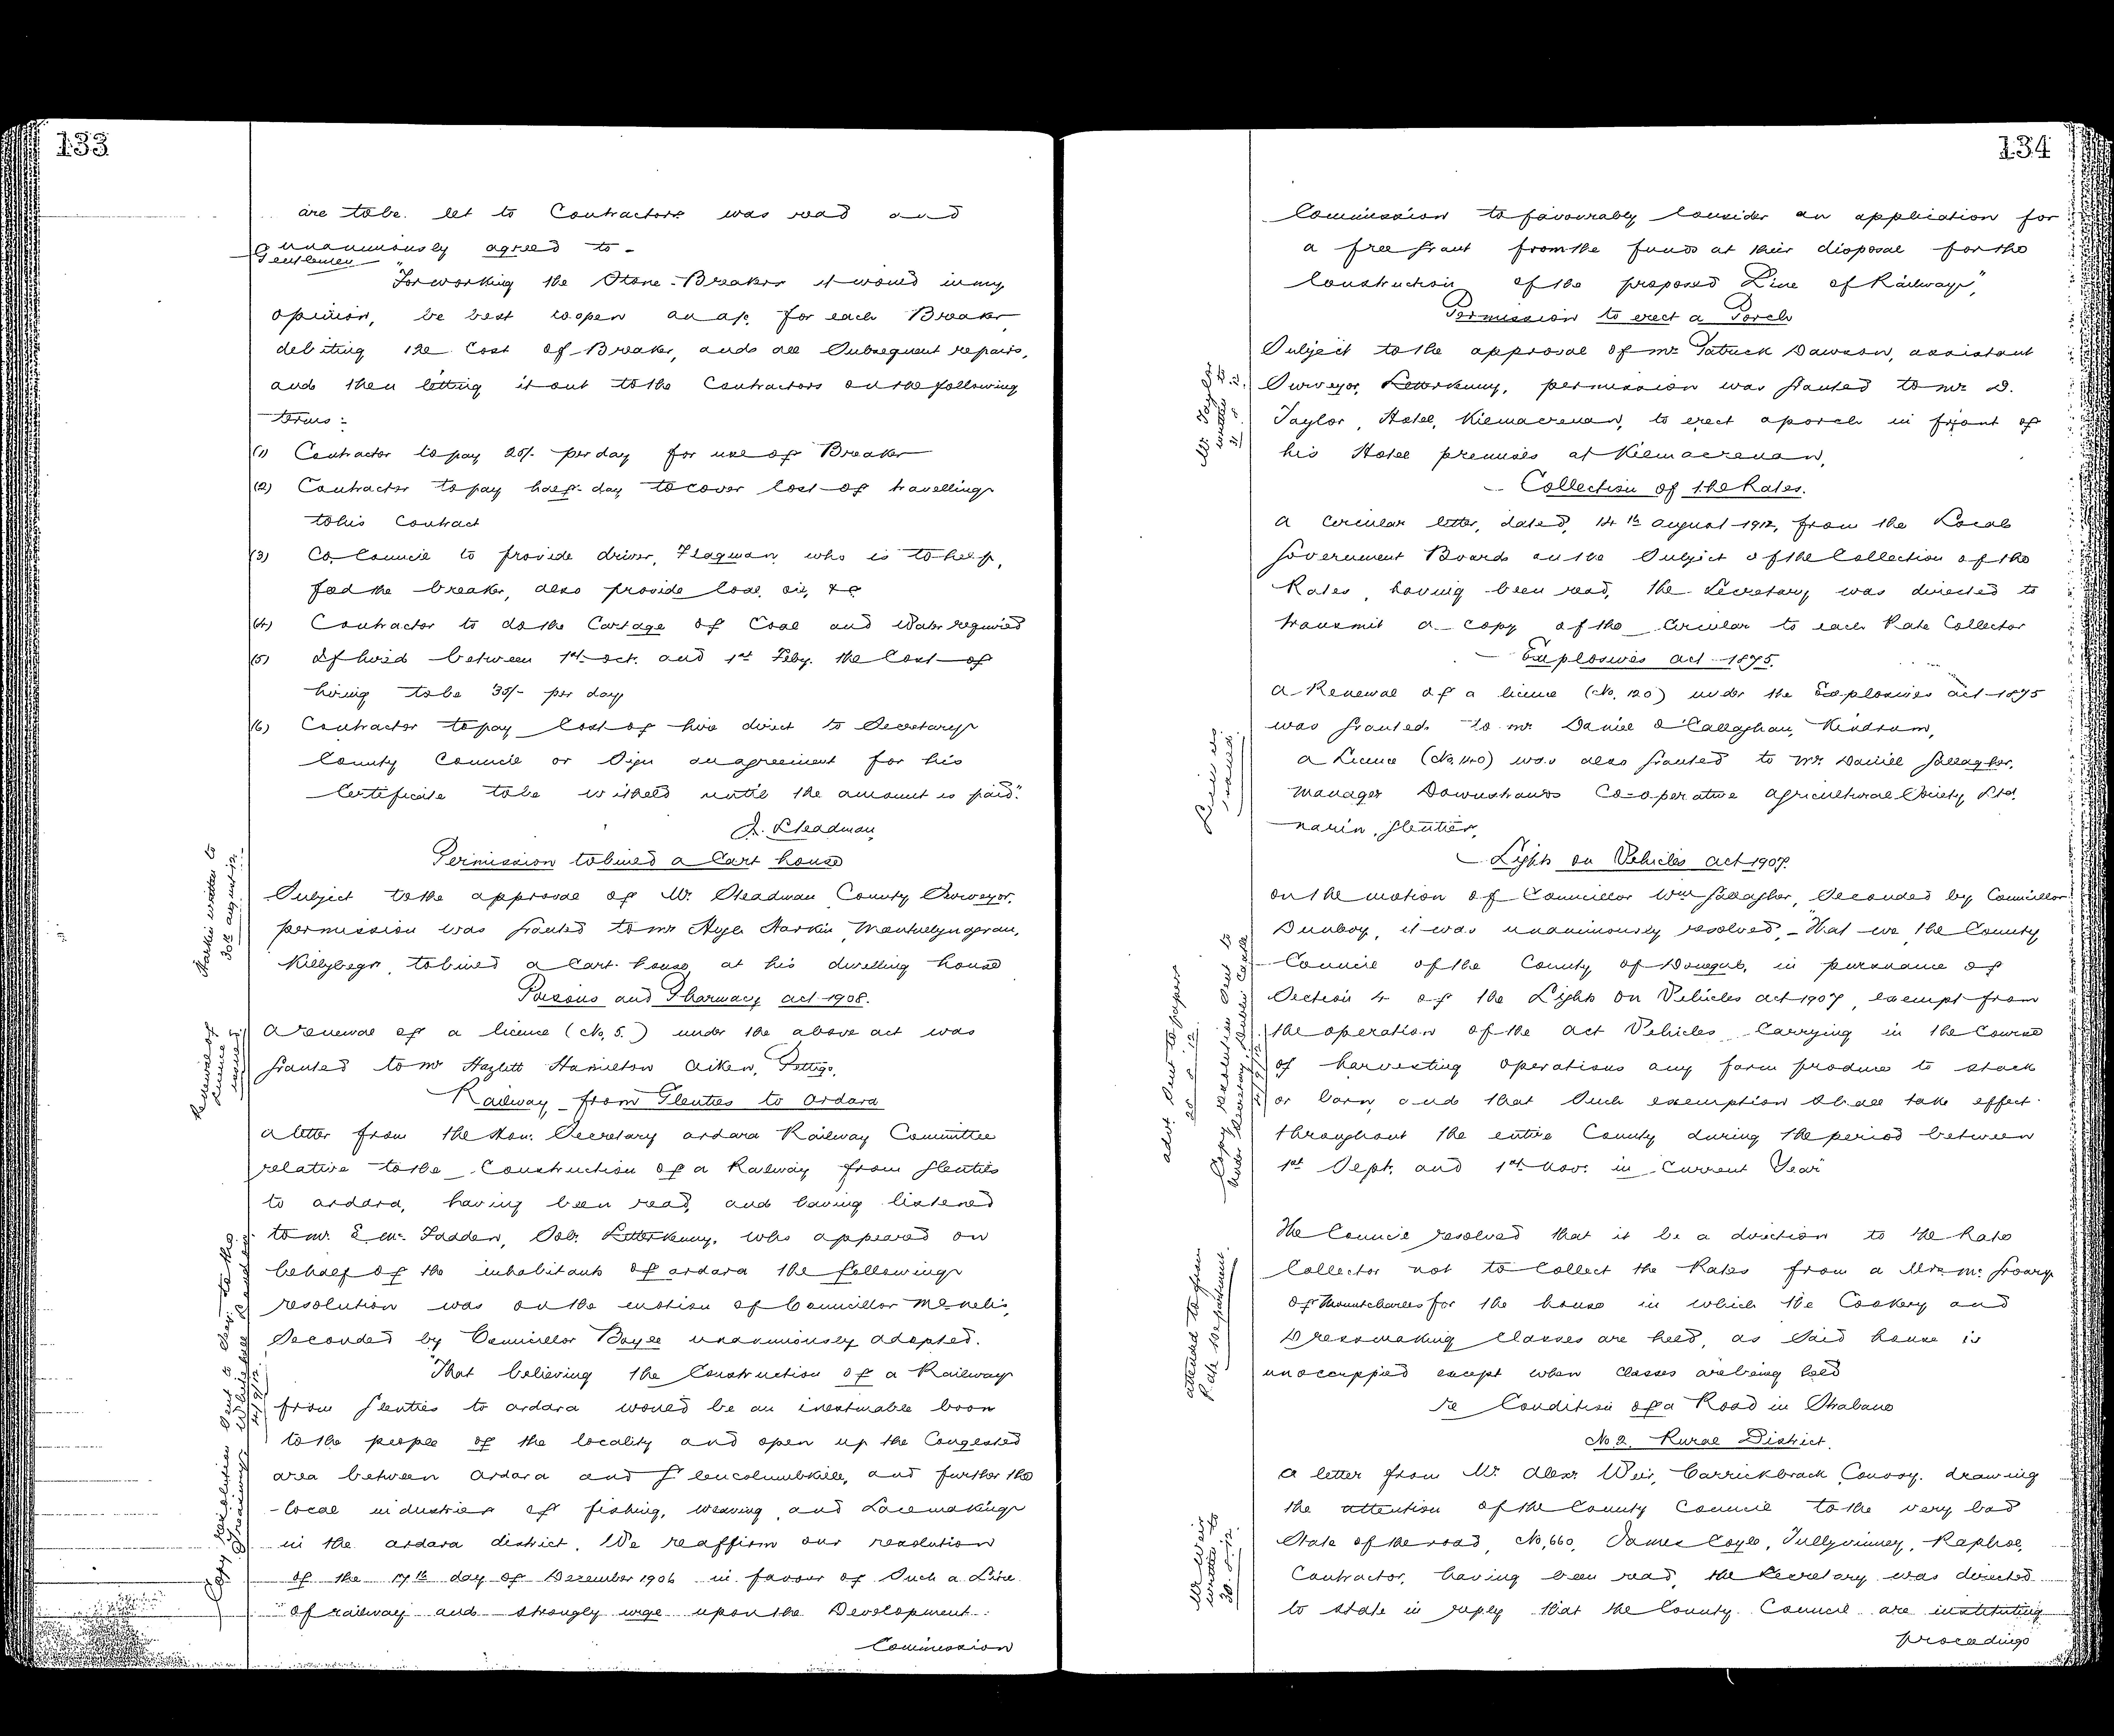 133
are to be let to Contractors was read and
unanimously agreed to -
Gentlemen
"For working the Stone-Breaker it would in my
opinion, be best to open an a/c for each Breaker
debiting the Cost of Breaker, and all Subsequent repairs,
and then letting it out to the Contractors on the following
terms:
(1) Contractor to pay 25/- per day for use of Breaker
(2) Contractor to pay half-day to cover cost of travelling
to his Contract
(3) Co. Council to provide driver, Flagman who is to help,
feed the breaker, also provide coal, oil, &c
(4) Contractor to do the Cartage of Coal and Water required
(5) If hired between 1st Oct. and 1st Feby. the Cost of
hiring to be 35/- per day
(6) Contractor to pay Cost of hire direct to Secretary
County Council or Sign an agreement for his
Certificate to be witheld until the amount is paid".
J. Steadman
Permission to build a Cart house
Harkin written to
30th august 12.
Subject to the approval of Mr. Steadman County Surveyor,
permission was granted to Mr Hugh Harkin,
Killybegs, to build a Cart house at his dwelling house
Poisons and Pharmacy act 1908.
Renewal of
licence
issued
A renewal of a licence (No. 5.) under the above act was
granted to Mr Hazlett Hamilton Aiken, Pettigo.
Railway from Glenties to Ardara
A letter from the Hon. Secretary Ardara Railway Committee
relative to the Construction of a Railway from Glenties
to Ardara, having been read, and having listened
to Mr. E. Mc. Fadden, Solr. Letterkenny, who appeared on
behalf of the inhabitants of Ardara the following
resolution was on the motion of Councillor McNelis,
Seconded by Councillor Boyle unanimously adopted.
Copy resolution sent to Secy. to the
Treasury, Whitehall London
4/9/12.
"That believing the Construction of a Railway
from Glenties to Ardara would be an inestimable boon
to the people of the locality and open up the Congested
area between Ardara and Glencolumbkille, and further the
local industries of fishing, weaving, and Lacemaking
in the Ardara district. We reaffirm our resolution
of the 17th day of December 1906 in favour of Such a Line
of railway and strongly urge upon the Development
Commission
134
Commission to favourably Consider an application for
a free grant from the funds at their disposal for the
Construction of the proposed Line of Railway".
Permission to erect a Porch
Mr Taylor
written to
Subject to the approval of Mr. Patrick Dawson, assistant
Surveyor, Letterkenny, permission was granted to Mr D.
Taylor, Hotel, Kilmacrenan, to erect a porch in front of
his Hotel premises at Kilmacrenan.
Collection of the Rates.
A circular letter, dated, 14th August 1912, from the Local
Government Board on the Subject of the Collection of the
Rates, having been read, the Secretary was directed to
transmit a copy of the Circular to each Rate Collector
Explosives act 1875.
A Renewal of a licence (No. 120) under the Explosives act 1875
was granted to Mr. Daniel O'Callaghan, Kindrum,
issued
a Licence (No. 140) was also granted to Mr. Daniel Gallagher,
Manager Downstrands Co-operative Agricultural Society Ltd.
Narin, Glenties,
Lights on Vehicles act 1907.
On the motion of Councillor Wm Gallagher, Seconded by Councillor
Dunboy, it was unanimously resolved - "That we, the County
Council of the County of Donegal, in pursuance of
Section 4 of the Lights on Vehicles act 1907, exempt from
the operation of the act Vehicles Carrying in the Course
of harvesting operations any farm produce to stack
or barn, and that Such exemption shall take effect
throughout the entire County during the period between
1st Sept. and 1st Nov. in Current Year"
advt. sent to papers
Copy resolution sent to
Under Secretary, Dublin Castle
4/9/12
The Council resolved that it be a direction to the Rate
Collector not to Collect the Rates from a Mrs. Mc. Groary
of Mountcharles for the house in which the Cookery and
Dressmaking Classes are held, as Said house is
unoccupied except when classes are being held
attended to from
Rate Department.
re Condition of a Road in Strabane
No 2. Rural District.
Mr Weir
written to
30.8.12.
A letter from Mr. Alexr Weir, Carrickbrack, Convoy. drawing
the attention of the County Council to the very bad
State of the road, No, 660, James Coyle, Tullyvinney, Raphoe,
Contractor, having been read, the Secretary was directed
to state in reply that the County Council are instituting
proceedings